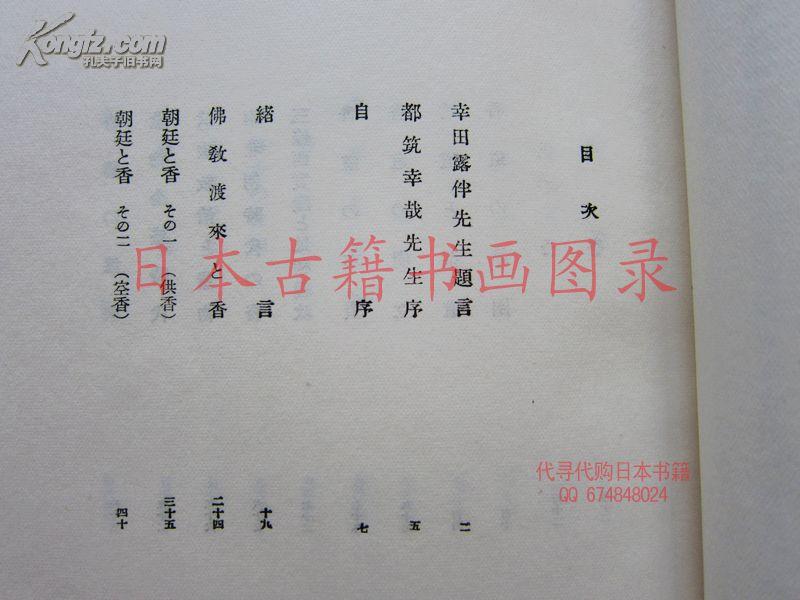 Kongfz.com
孔夫子旧书网
目次
幸田露伴先生題言 二
都筑幸哉先生序 五
自序 七
緒言 十九
佛敎渡來と香 二十四
朝廷と香 その一 (供香) 三十五
朝廷と香 その二 (空香) 四十
日本古籍书画图录
代寻代购日本书籍
QQ 674848024